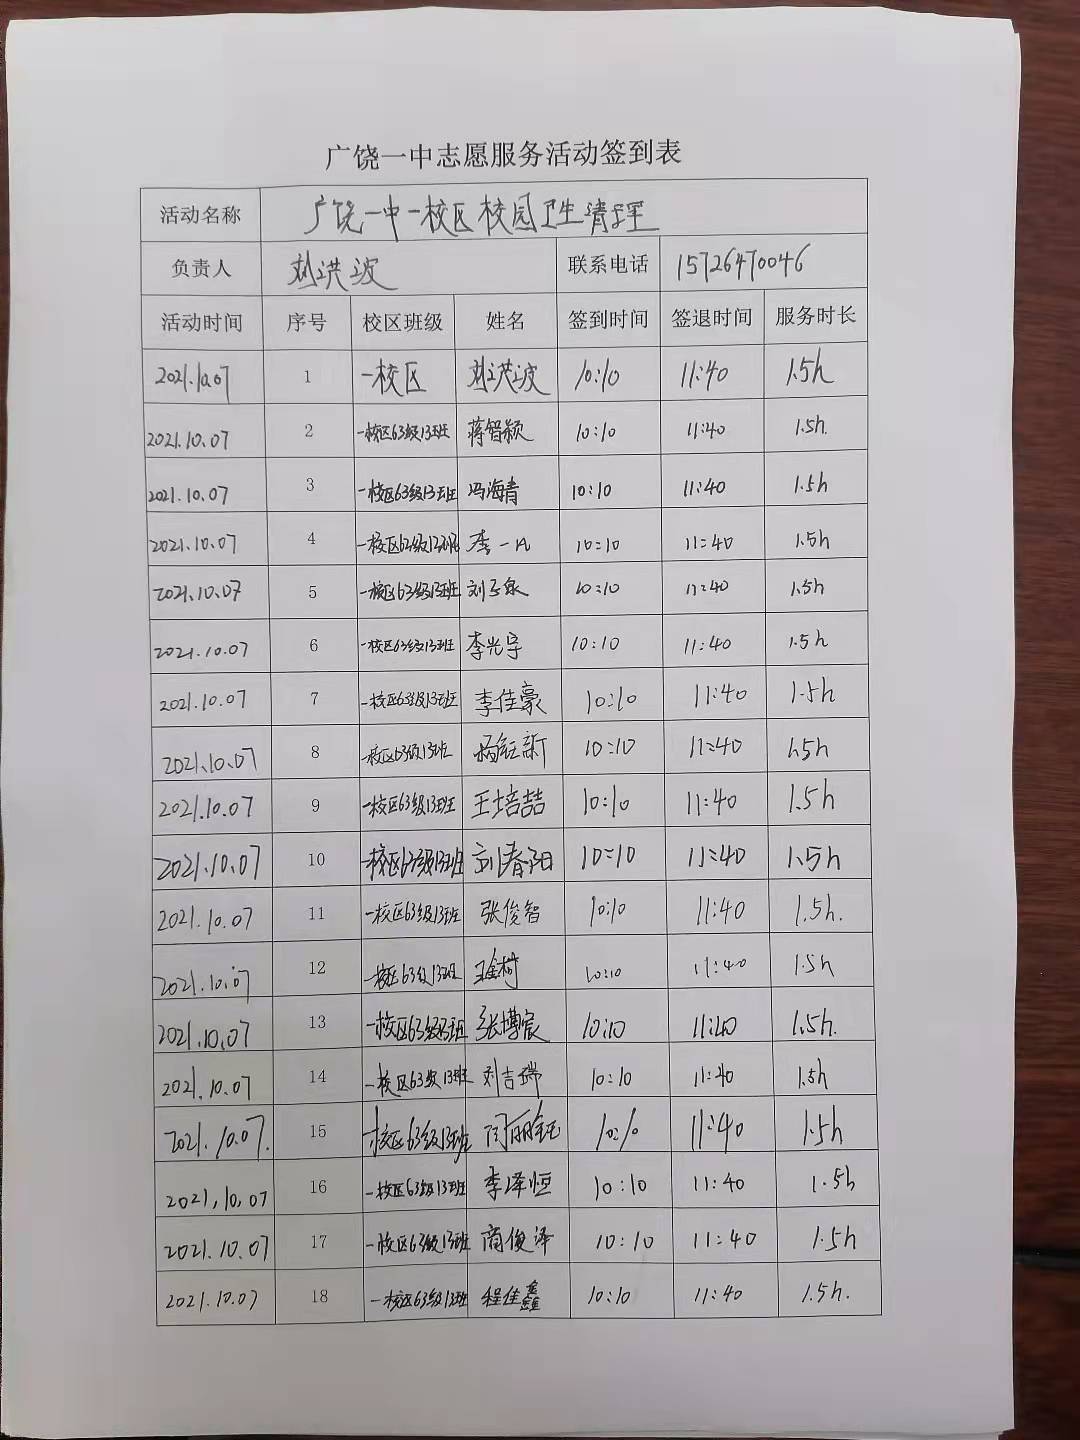 广饶一中志愿服务活动签到表
活动名称 广饶一中一校区校园卫生清理
负责人 刘洪波 联系电话 15726470046
活动时间 序号 校区班级 姓名 签到时间 签退时间 服务时长
2021.10.07 1 一校区 刘洪波 10:10 11:40 1.5h
2021.10.07 2 一校区63级13班 蒋智颖 10:10 11:40 1.5h.
2021.10.07 3 一校区63级13班 冯海青 10:10 11:40 1.5h
2021.10.07 4 李一 10:10 11:40 1.5h
2021.10.07 5 一校区63级13班 刘子泉 10:10 11:40 1.5h
2021.10.07 6 一校区63级13班 李光宇 10:10 11:40 1.5h
2021.10.07 7 一校区63级13班 李佳豪 10:10 11:40 1.5h
2021.10.07 8 一校区63级13班 杨钰新 10:10 11:40 1.5h
2021.10.07 9 一校区63级13班 王培喆 10:10 11:40 1.5h
2021.10.07 10 一校区63级13班 刘春阳 10:10 11:40 1.5h
2021.10.07 11 一校区63级13班 张俊智 10:10 11:40 1.5h.
2021.10.07 12 一校区63级13班 10:10 11:40 1.5h
2021.10.07 13 一校区63级13班 张博宸 10:10 11:40 1.5h.
2021.10.07 14 一校区63级13班 刘吉瑞 10:10 11:40 1.5h
2021.10.07. 15 一校区63级13班 闫丽钰 10:10 11:40 1.5h
2021.10.07 16 一校区63级13班 李泽恒 10:10 11:40 1.5h
2021.10.07 17 一校区63级13班 商俊泽 10:10 11:40 1.5h
2021.10.07 18 一校区63级13班 程佳鑫 10:10 11:40 1.5h.